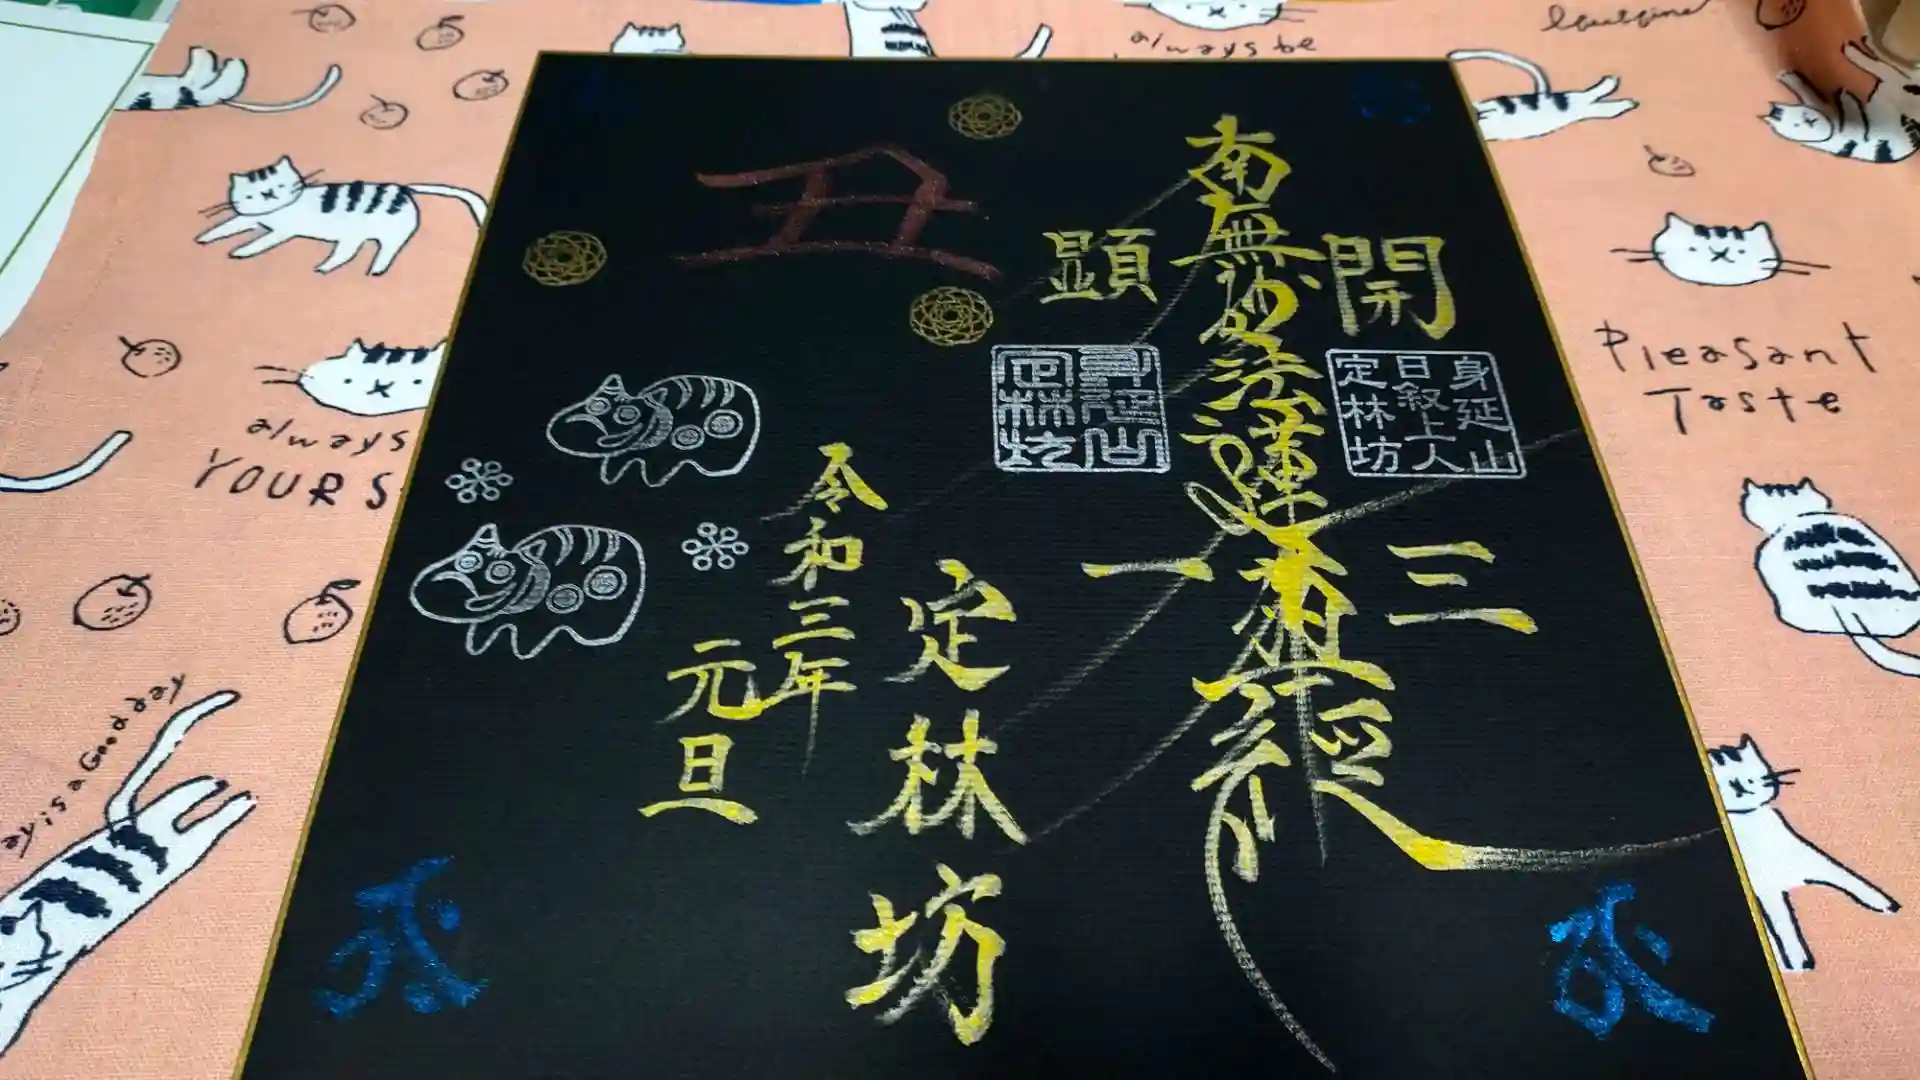 南無妙法蓮華経
開
三
顕
一
身延山
日叙上人
定林坊
身延山
定林坊
定林坊
令和三年
元旦
丑
always be
always
YOURS
Pleasant
Taste
ay is a Good day